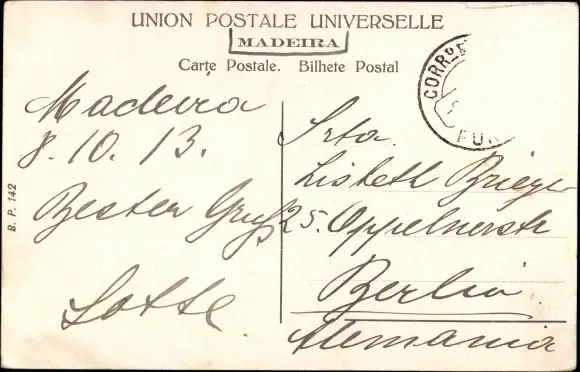 UNION POSTALE UNIVERSELLE
MADEIRA
Carte Postale. Bilhete Postal
CORRO
FUN
B. P. 142
Madeira
8. 10. 13.
Bester Gruß
Lotte.
Srta.
Lisbeth Brieger
25. Oppelnerstr
Berlin.
Alemania